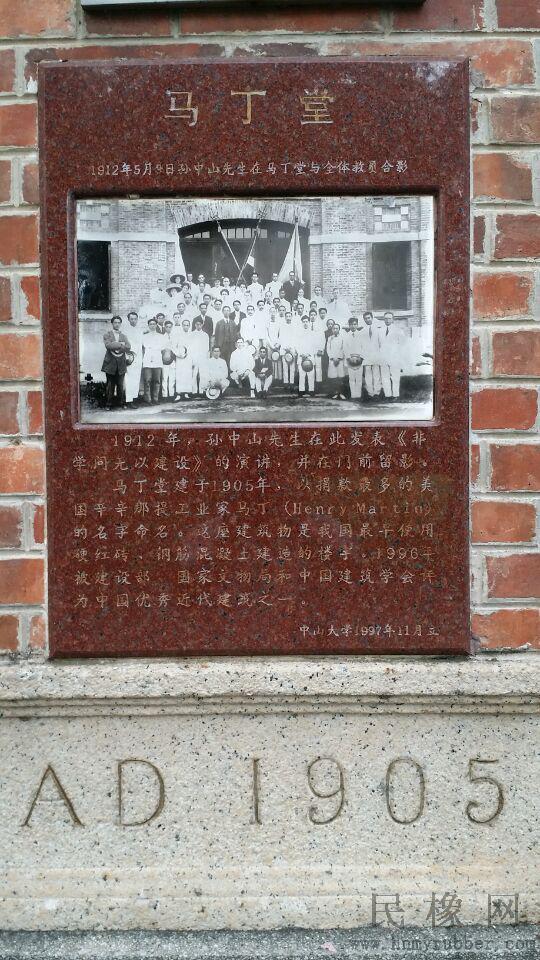 马丁堂
1912年5月9日孙中山先生在马丁堂与全体教员合影
1912年，孙中山先生在此发表《非
学问无以建设》的演讲，并在门前留影。
马丁堂建于1905年，以捐款最多的美
国辛辛那提工业家马丁（Henry Martin）
的名字命名。这座建筑物是我国最早使用
硬红砖、钢筋混凝土建造的楼宇。1996年
被建设部、国家文物局和中国建筑学会评
为中国优秀近代建筑之一。
中山大学1997年11月立
AD 1905
民橡网
www.hnmyrubber.com